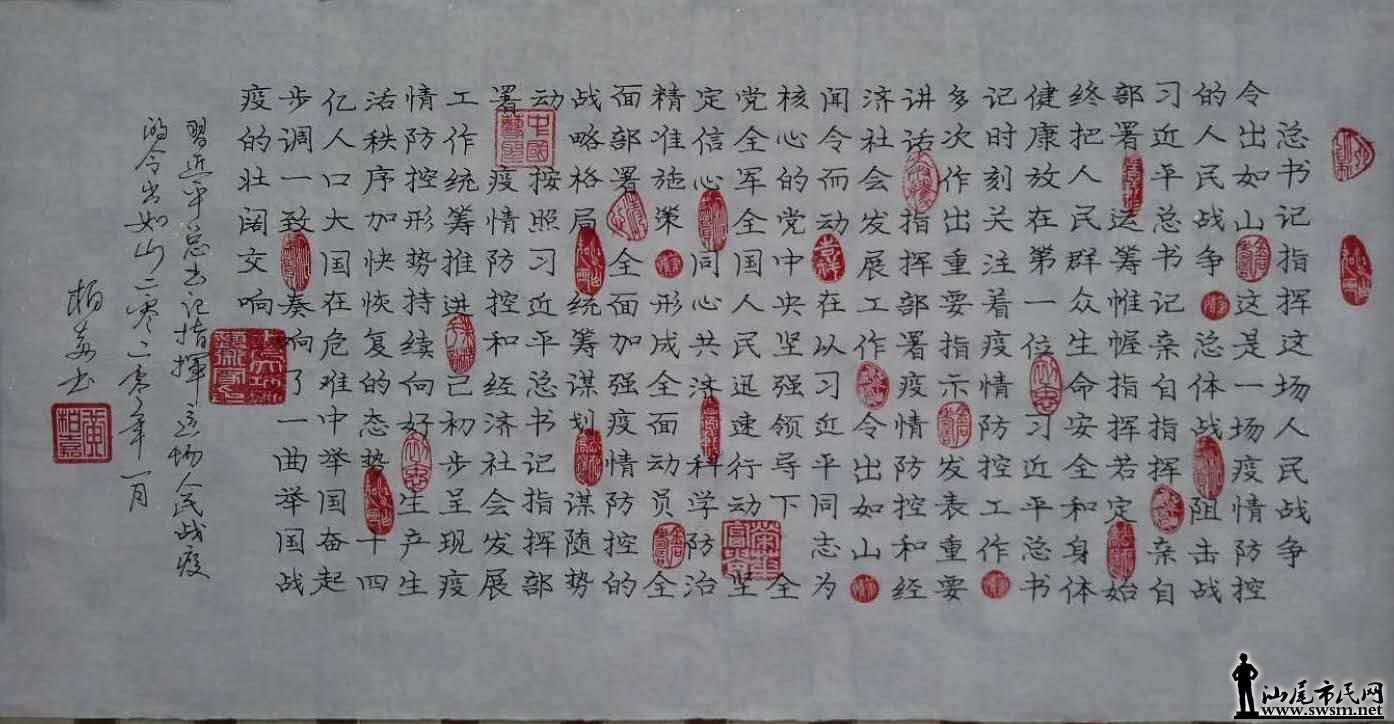 总书记指挥这场人民战争
令出如山这是一场疫情防控
的人民战争总体战阻击战
习近平总书记亲自指挥亲自
部署运筹帷幄指挥若定始
终把人民群众生命安全和身体
健康放在第一位习近平总书
记时刻关注着疫情防控工作
多次作出重要指示发表重要
讲话指挥部署疫情防控和经
济社会发展工作令出如山
闻令而动在以习近平同志为
核心的党中央坚强领导下全
党全军全国人民迅速行动坚
定信心同心共济科学防治
精准施策形成全面动员全
面部署全面加强疫情防控的
战略格局统筹谋划谋随势
动按照习近平总书记指挥部
署疫情防控和经济社会发展
工作统筹推进已初步呈现疫
情防控形势持续向好生产生
活秩序加快恢复的态势十四
亿人口大国在危难中举国奋起
步调一致奏响了一曲举国战
疫的壮阔交响
習近平总书记指挥这场人民战疫
的令出如山二零二零年一月
柏嘉书
黄柏嘉
汕尾市民网
www.swsm.net